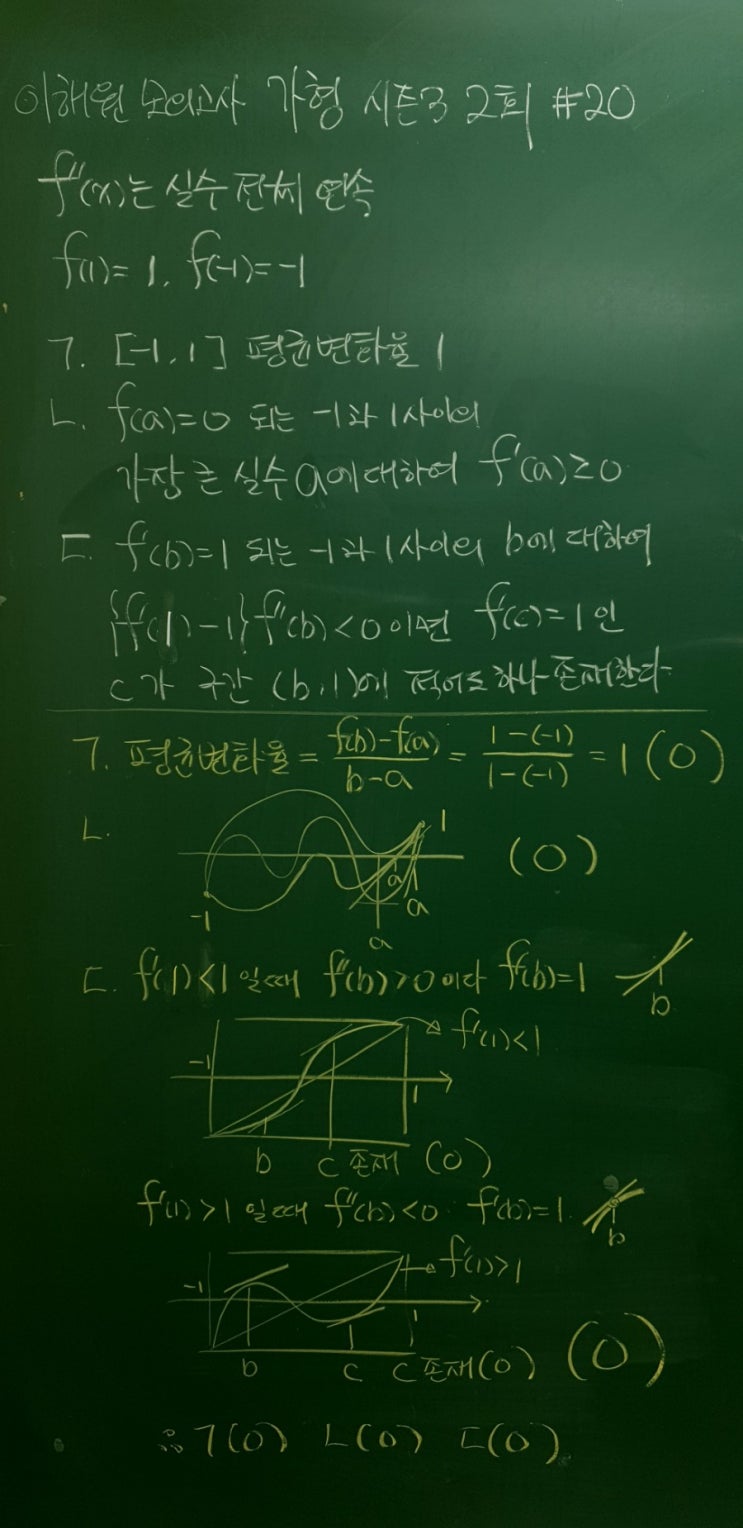 이해원 모의고사 가형 시즌3 2회 #20
f''(x)는 실수 전체 연속
f(1)=1, f(-1)=-1
ㄱ. [-1, 1] 평균변화율 1
ㄴ. f(a)=0 되는 -1과 1사이의
가장 큰 실수 a에 대하여 f'(a)≥0
ㄷ. f'(b)=1 되는 -1과 1사이의 b에 대하여
{f'(1)-1}f''(b)<0 이면 f'(c)=1 인
c가 구간 (b, 1)에 적어도 하나 존재한다
ㄱ. 평균변화율 = \frac{f(b)-f(a)}{b-a} = \frac{1-(-1)}{1-(-1)} = 1 (O)
ㄴ. (O)
1
-1
a
a
a
ㄷ. f'(1)<1 일때 f''(b)>0 이다 f'(b)=1
b
f'(1)<1
-1
1
b c 존재 (O)
f'(1)>1 일때 f''(b)<0 f'(b)=1
b
f'(1)>1
-1
1
b c c 존재(O) (O)
∴ ㄱ(O) ㄴ(O) ㄷ(O)